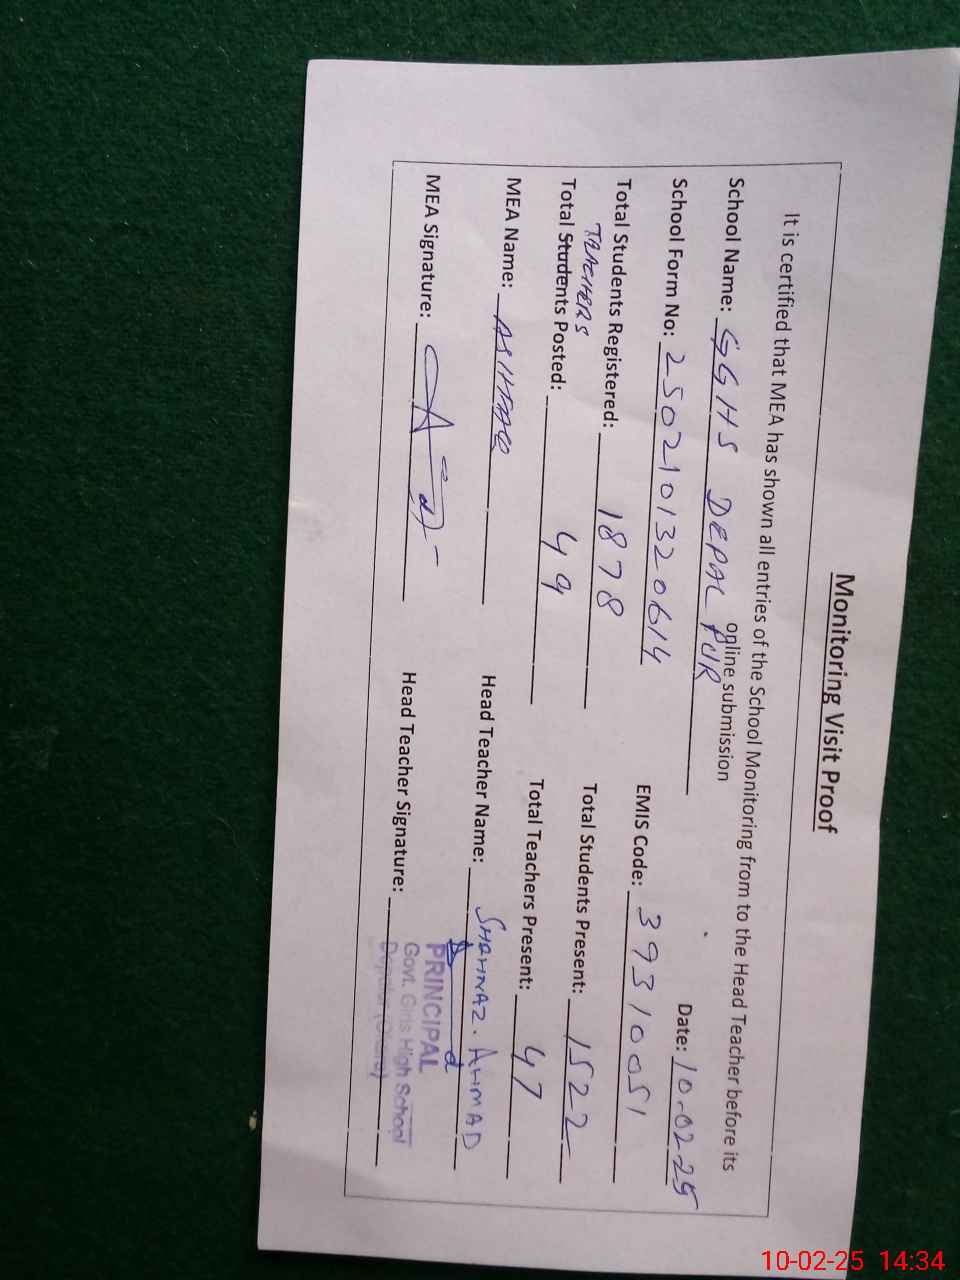 Monitoring Visit Proof
It is certified that MEA has shown all entries of the School Monitoring from to the Head Teacher before its
online submission
School Name: GGHS DEPAL PUR Date: 10-02-25
School Form No: 2502101320614 EMIS Code: 39310051
Total Students Registered: 1878 Total Students Present: 1522
TEACHERS
Total Students Posted: 49 Total Teachers Present: 47
MEA Name: ASHFAQ Head Teacher Name: SHAHNAZ. AHMAD
MEA Signature: Head Teacher Signature:
PRINCIPAL
Govt. Girls High School
10-02-25 14:34